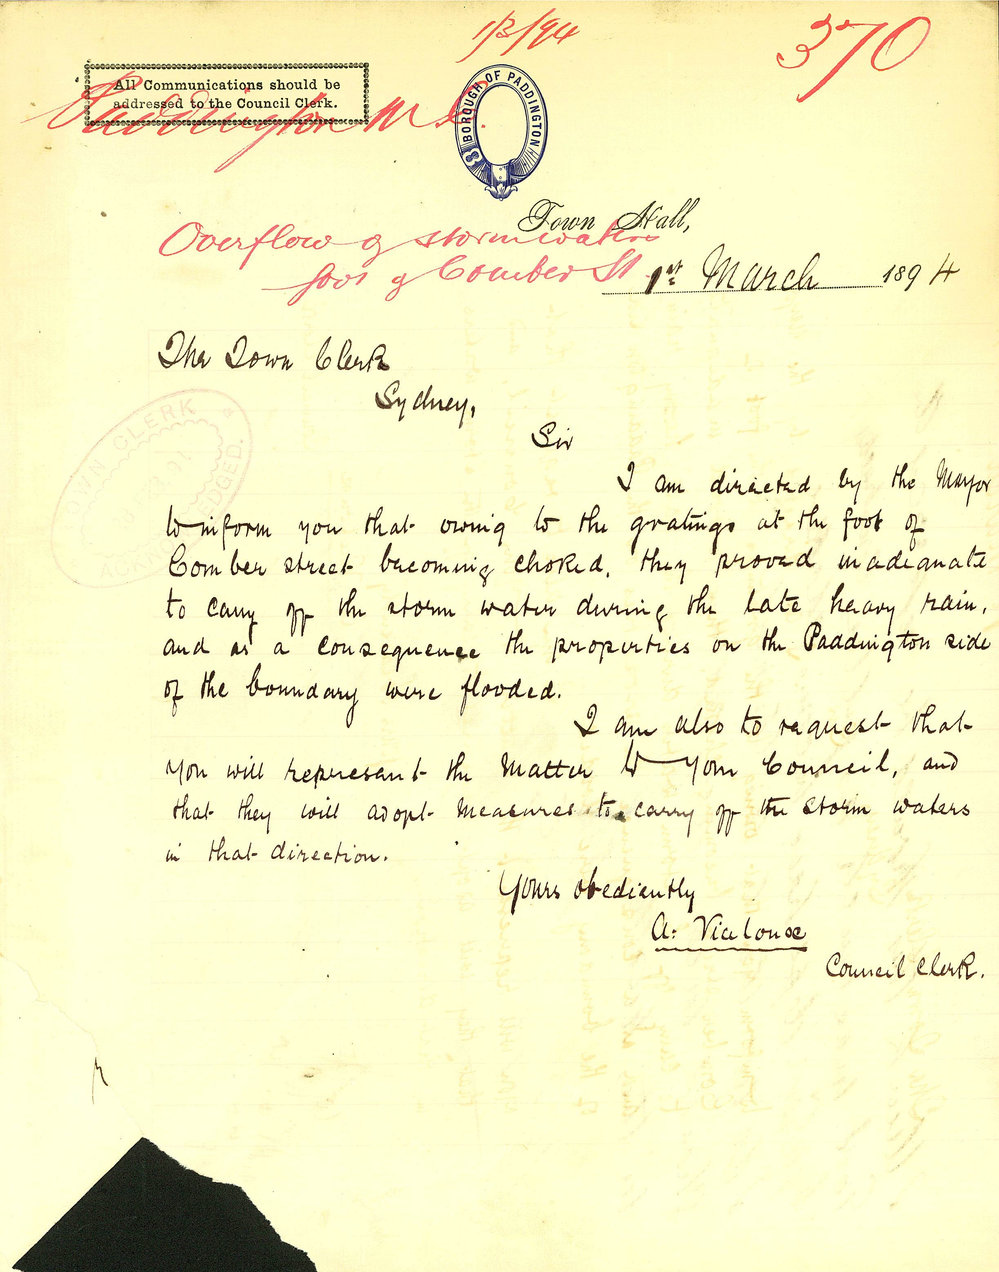 1/3/94
370
All Communications should be
addressed to the Council Clerk.
Paddington M.C.
BOROUGH OF PADDINGTON
Town Hall,
Overflow of stormwaters
foot of Comber St
1st March 1894
The Town Clerk
Sydney,
TOWN CLERK
ACKNOWLEDGED.
Sir
I am directed by the Mayor
to inform you that owing to the gratings at the foot of
Comber street becoming choked, they proved inadequate
to carry off the storm water during the late heavy rain,
and as a consequence the properties on the Paddington side
of the boundary were flooded.
I am also to request that
you will represent the matter to your Council, and
that they will adopt measures to carry off the storm waters
in that direction.
Yours obediently
A. Vialoux
Council Clerk.